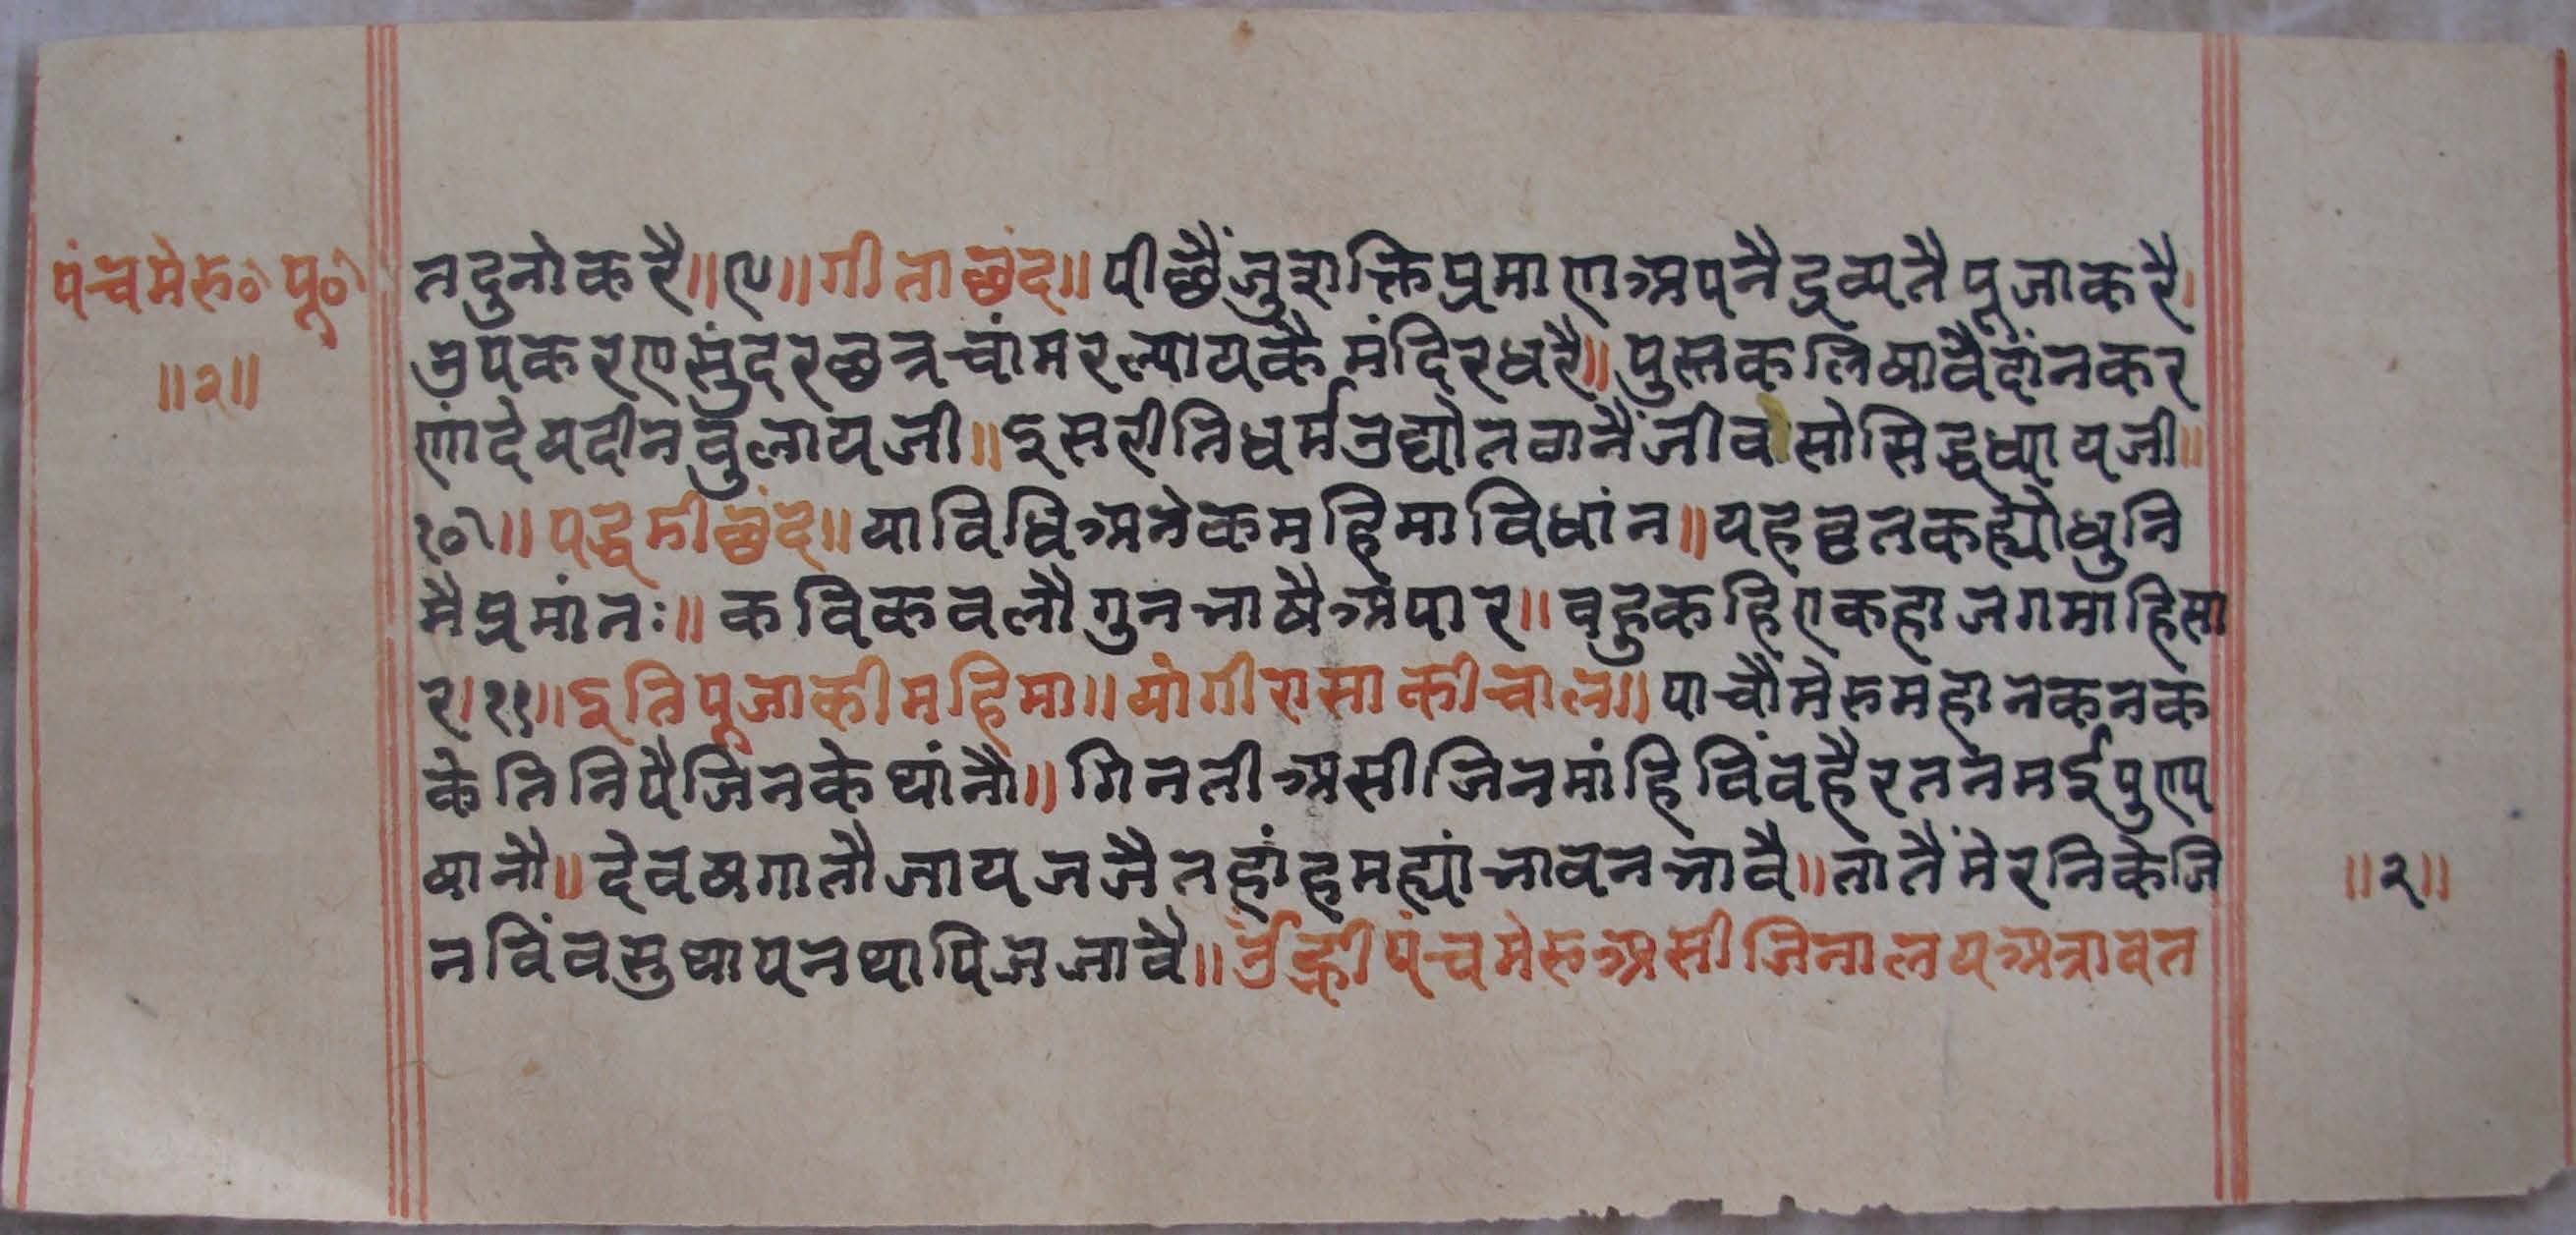 पंचमेरु० पू०
॥२॥
तदुनोकरै॥९॥गीताछंद॥पीछैंजुशक्तिप्रमाणअपनैद्रव्यतैपूजाकरै।
उपकरणसुंदरछत्रचांमरल्यायकैमंदिरधरै॥पुस्तकलिषावैदांनकर
णांदेयदीनवुलायजी॥इसरीतिधर्मउद्योतवानैंजीवसोसिद्धथायजी॥
१०॥पद्धडीछंद॥याविधिअनेकमहिमाविधांन॥यहव्रतकह्योधुनि
मैप्रमांनः॥कविकवलौगुनभाषैअंपार॥वहुकहिएकहाजगमांहिसा
र।११॥इतिपूजाकीमहिमा॥योगीरासाकीचाल॥पाचौंमेरुमहानकनक
केतिनिपैजिनकेथांनौ॥गिनतीअसीजिनमांहिविंवहैरतनमईपुण्य
षानौ॥देवषगातौजायजजैतहांहमह्यांभावनभावै॥तातैंमेरनिकेजि
नविंवसुथापनथापिजजावै॥उंह्रीपंचमेरुअसीजिनालयअत्रावत
॥२॥